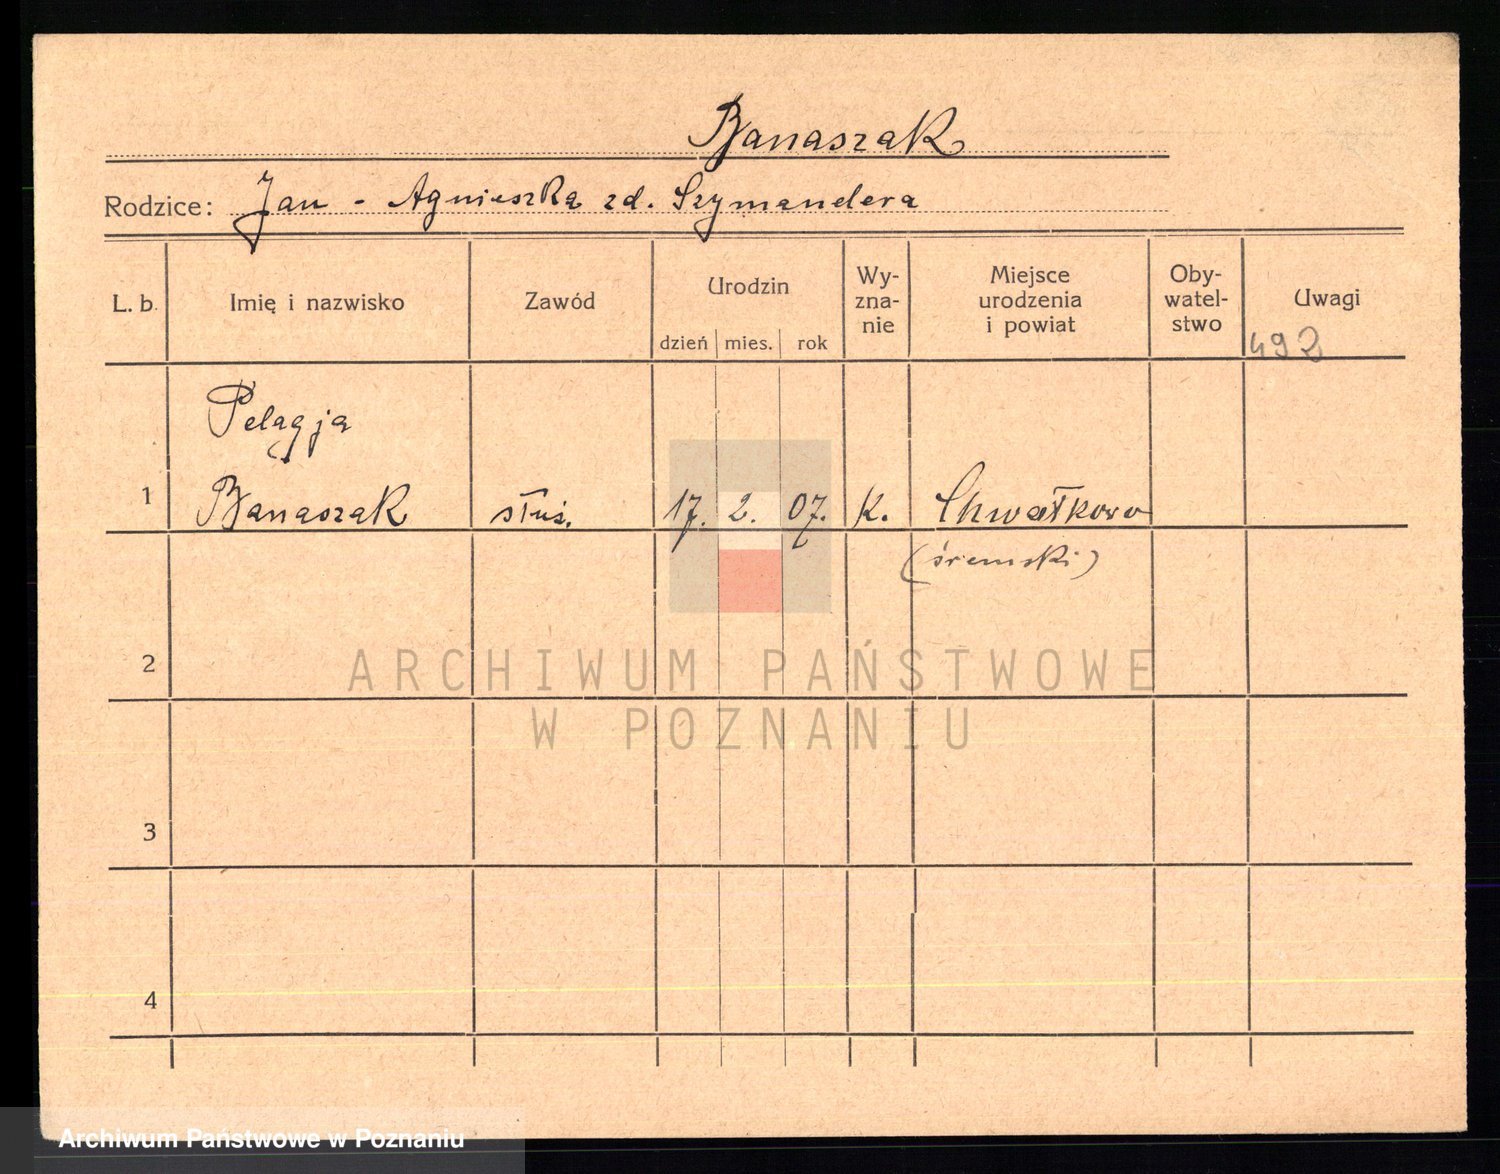 Banaszak
Rodzice: Jan - Agnieszka zd. Szymandera
L. b. Imię i nazwisko Zawód Urodzin Wy-zna-nie Miejsce urodzenia i powiat Oby-watel-stwo Uwagi
dzień mies. rok
492
Pelagja
1 Banaszak służ. 17. 2. 07. k. Chwałkowo
(śremski)
2
ARCHIWUM PAŃSTWOWE
W POZNANIU
3
4
Archiwum Państwowe w Poznaniu